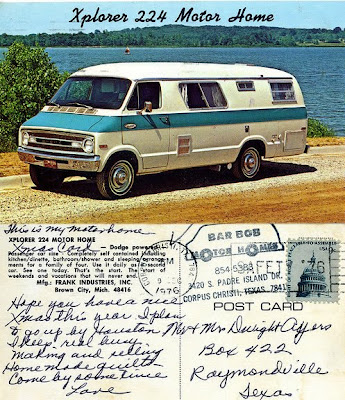 Xplorer 224 Motor Home
This is my motorhome
XPLORER 224 MOTOR HOME
Xmas Card
— Dodge powered.
Passenger car size. Completely self contained including
kitchen/dinette, bathroom/shower and sleeping arrange-
ments for a family of four. Use it daily as a second
car. See one today. That's the start. The start of
weekends and vacations that will never end.
Mfg. by FRANK INDUSTRIES, INC.
Brown City, Mich. 48416
Hope you have a nice
Xmas this year I plan
to go up by Houston
I keep real busy
Making and selling
Home made quilts
Come by sometime
Love
PM
1976
BAR BOB
MOTOR HOMES
3120 S. PADRE ISLAND DR.
CORPUS CHRISTI, TEXAS
POST CARD
Mr & Mrs Dwight Affers
Box 422
Raymondville
Texas